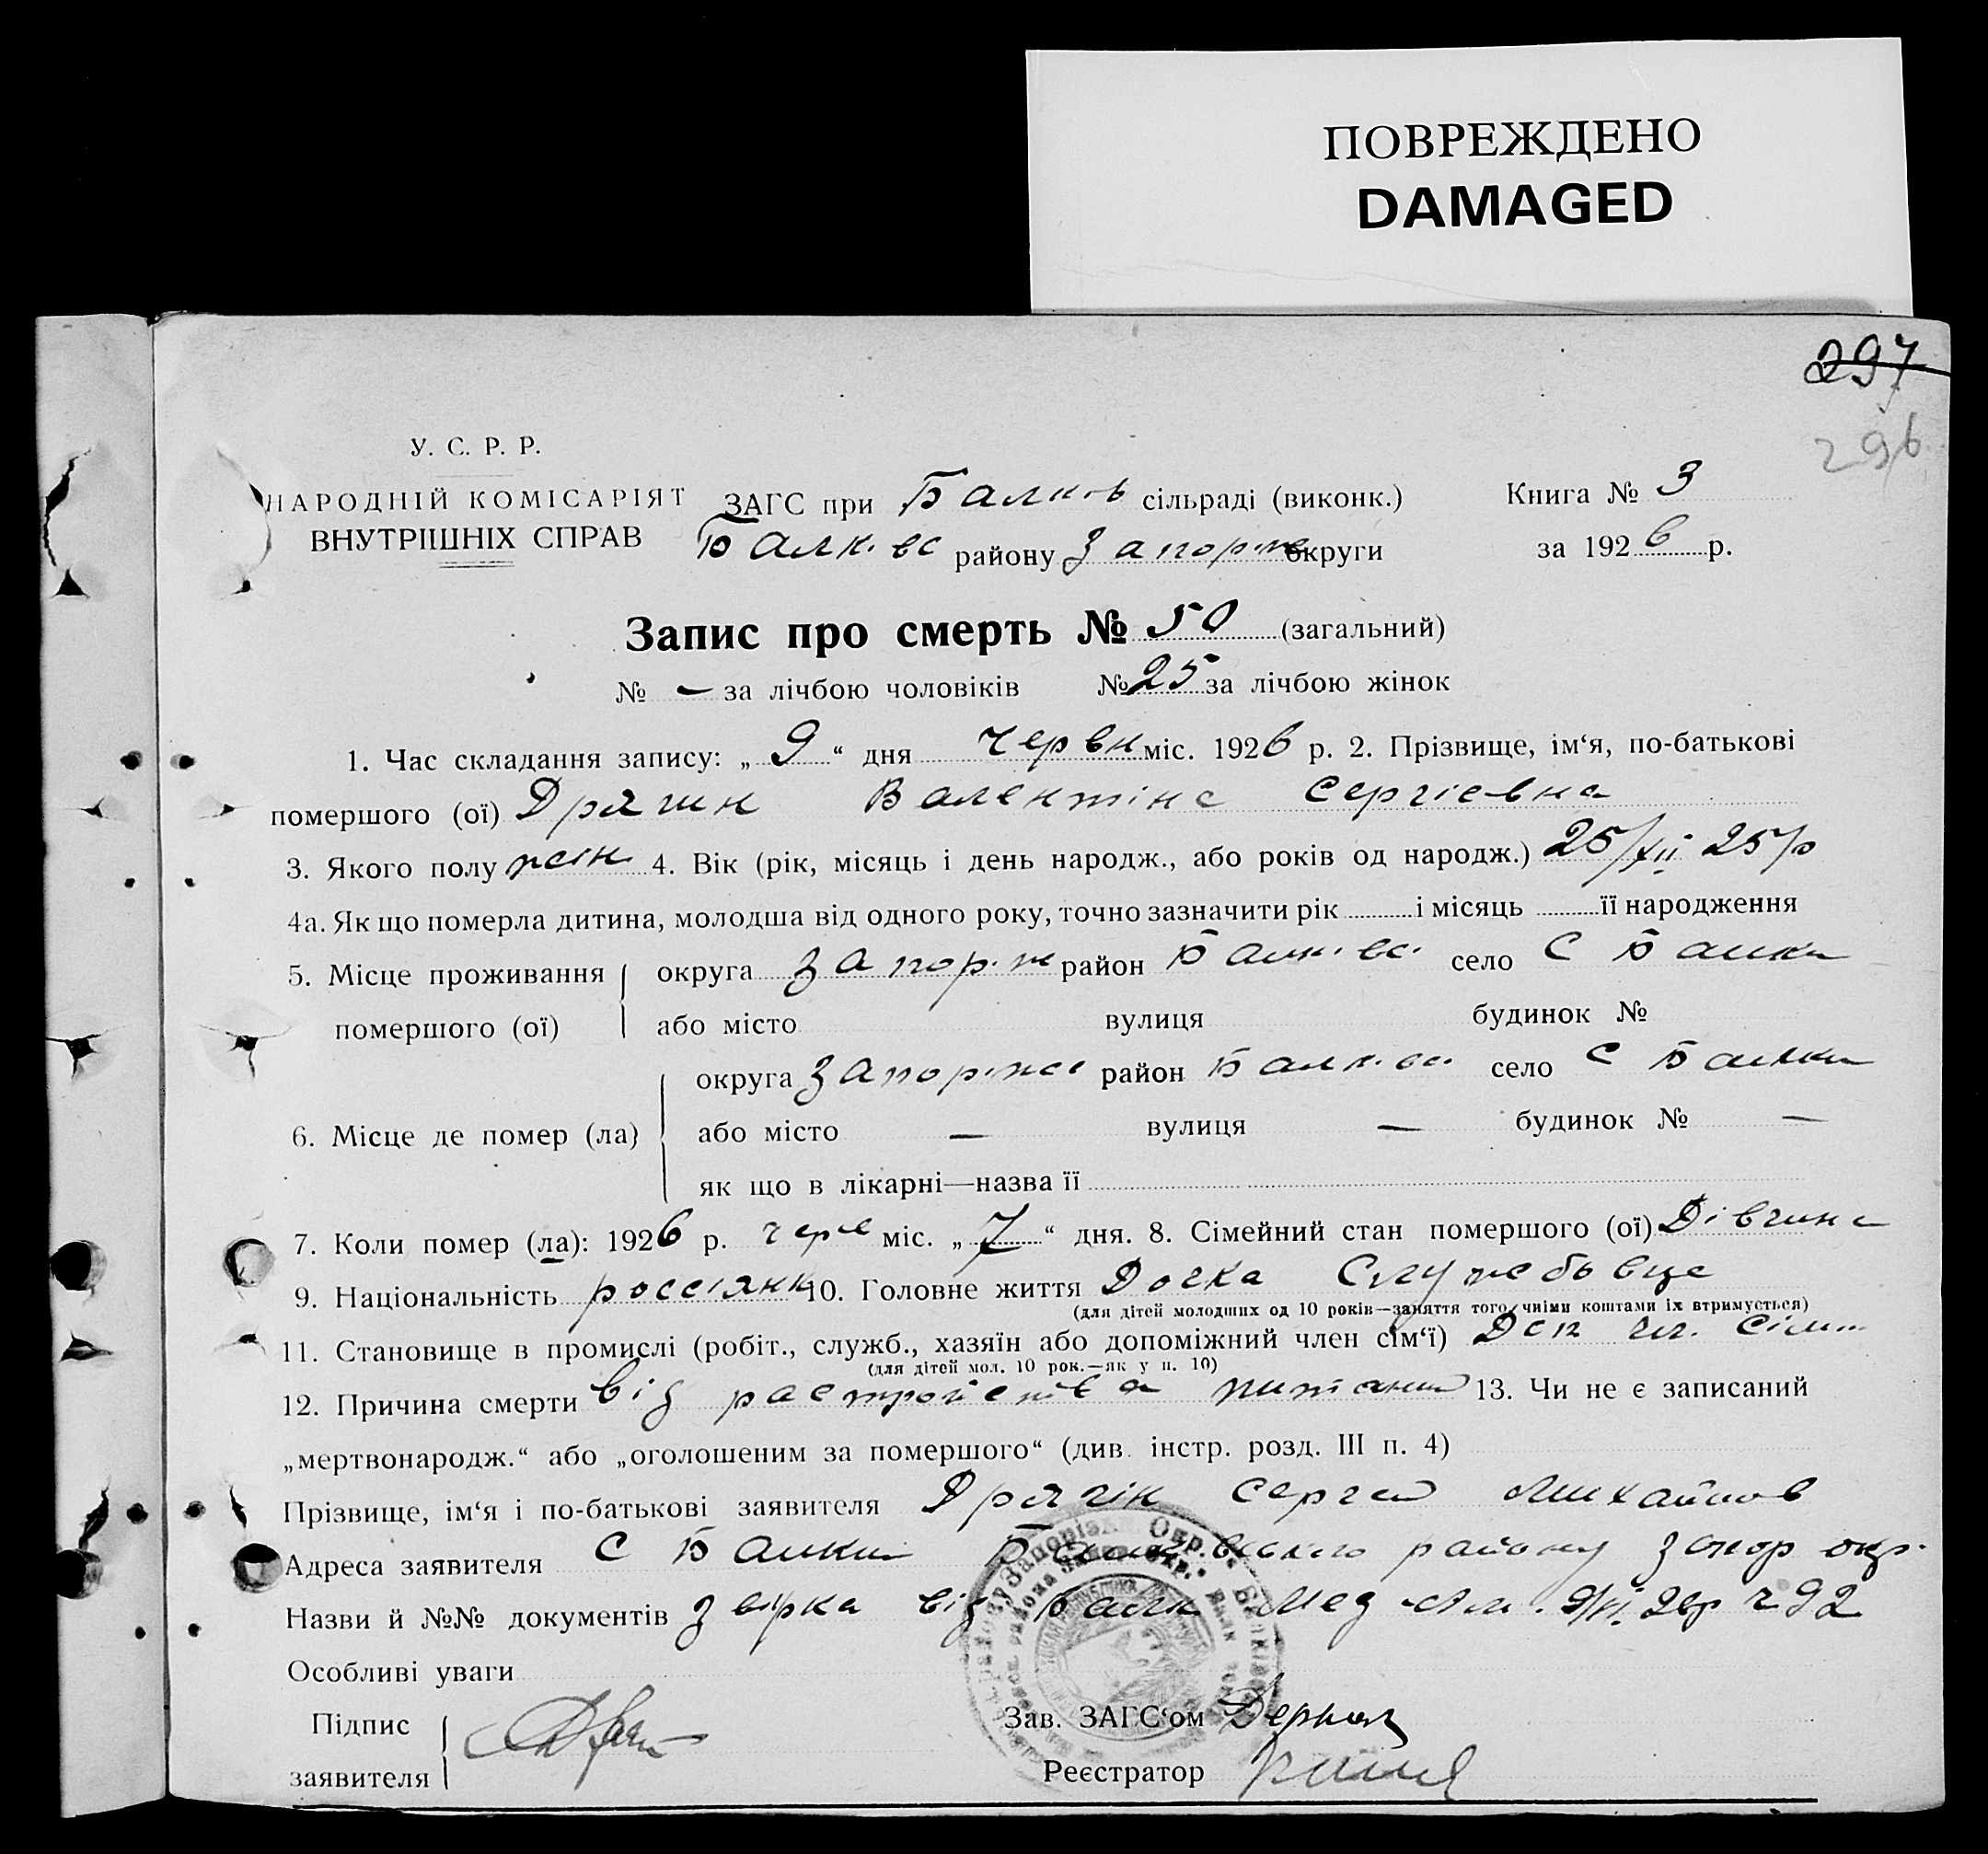 ПОВРЕЖДЕНО
DAMAGED
297
296
У. С. Р. Р.
НАРОДНІЙ КОМІСАРІЯТ
ВНУТРІШНІХ СПРАВ
ЗАГС при Балків сільраді (виконк.)
Балк. вс району Запоріж округи
Книга № 3
за 1926 р.
Запис про смерть № 50 (загальний)
№ — за лічбою чоловіків № 25 за лічбою жінок
1. Час складання запису: „ 9 “ дня червн міс. 1926 р. 2. Прізвище, ім‘я, по-батькові
помершого (ої) Дрягин Валентіна Сергіевна
3. Якого полу жін 4. Вік (рік, місяць і день народж., або років од народж.) 25/XII 25/р
4а. Як що померла дитина, молодша від одного року, точно зазначити рік і місяць її народження
5. Місце проживання помершого (ої) округа Запорж район Балк. вс. село С Балки
або місто вулиця будинок №
6. Місце де помер (ла) округа Запоріжс район Балк. вс. село С Балки
або місто — вулиця — будинок № —
як що в лікарні—назва її
7. Коли помер (ла): 1926 р. черв міс. „ 7 “ дня. 8. Сімейний стан помершого (ої) Дівчина
9. Національність россіянк 10. Головне життя Дочка Службовця
(для дітей молодших од 10 років—заняття того, чиїми коштами їх втримується)
11. Становище в промислі (робіт., служб., хазяїн або допоміжний член сім‘ї) Доп чл. сім
(для дітей мол. 10 рок.—як у п. 10)
12. Причина смерти від растройства питания 13. Чи не є записаний
„мертвонародж.“ або „оголошеним за помершого“ (див. інстр. розд. III п. 4)
Прізвище, ім‘я і по-батькові заявителя Дрягін Сергей Михайлов
Адреса заявителя С Балки Балківського району Запор окр.
Назви й №№ документів від Балк Мед 9/VI 26р ч 92
Особливі уваги
Підпис заявителя
Зав. ЗАГС‘ом
Реєстратор